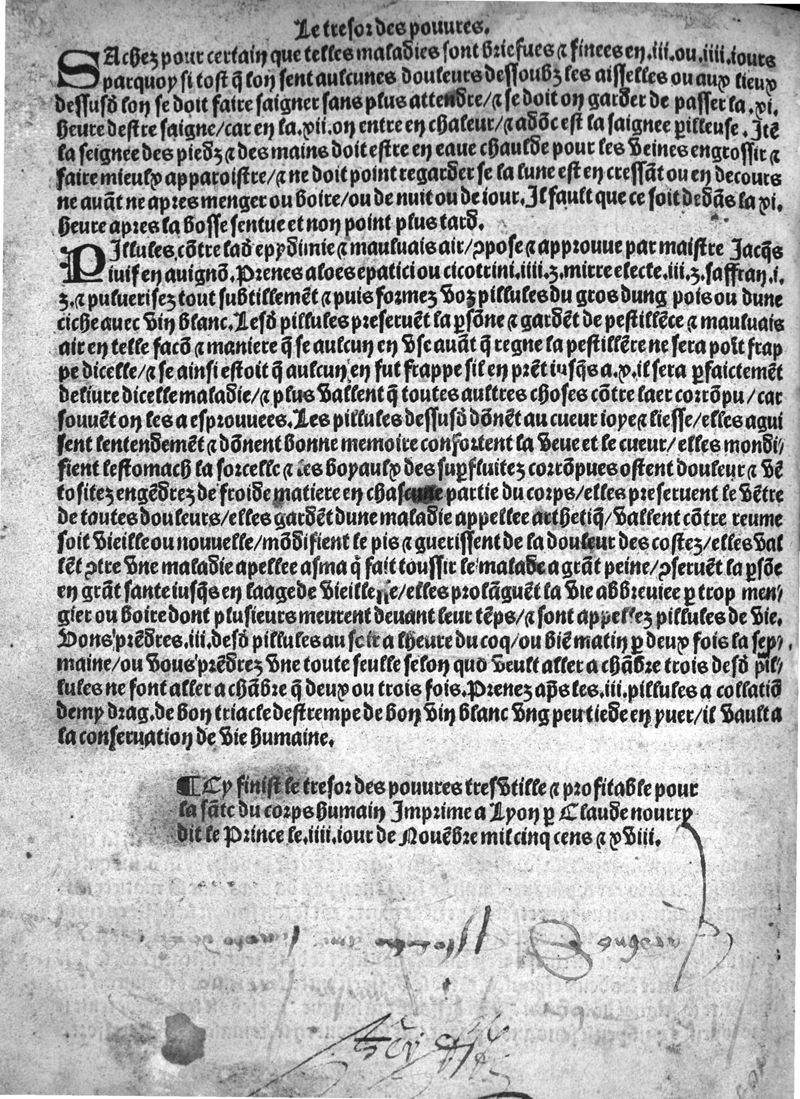 Le tresor des pouures.
SAchez pour certain que telles maladies sont briefues ⁊ finees en .iii. ou .iiii. iours
parquoy si tost q̃ lon sent aulcunes douleurs dessoubz les aisselles ou aux lieux
dessusd̃ lon se doit faire saigner sans plus attendre/⁊ se doit on garder de passer la .xi.
heure destre saigne/car en la .xii. on entre en chaleur/⁊ adõc est la saignee ꝑilleuse. Itẽ
la seignee des piedz ⁊ des mains doit estre en eaue chaulde pour les veines engrossir ⁊
faire mieulx apparoistre/⁊ ne doit point regarder se la lune est en cressãt ou en decours
ne auãt ne apres menger ou boire/ou de nuit ou de iour. Il fault que ce soit dedãs la xi.
heure apres la bosse sentue et non point plus tard.
PIllules cõtre lad̃ epydimie ⁊ mauluais air/ꝯpose ⁊ approuue par maistre Jacq̃s
iuif en auignõ. Prenes aloes epatici ou cicotrini .iiii. ʒ. mirre electe .iii. ʒ. saffran .i.
ʒ. ⁊ puluerisez tout subtillemẽt ⁊ puis formez voz pillules du gros dung pois ou dune
ciche auec vin blanc. Lesd̃ pillules preseruẽt la ꝑsõne ⁊ gardẽt de pestillẽce ⁊ mauluais
air en telle facõ ⁊ maniere q̃ se aulcun en vse auãt q̃ regne la pestillẽre ne sera poĩt frap
pe dicelle/⁊ se ainsi estoit q̃ aulcun en fut frappe sil en prẽt iusq̃s a .x. il sera ꝑfaictemẽt
deliure dicelle maladie/⁊ plus vallent q̃ toutes aultres choses cõtre laer corrõpu/car
souuẽt on les a esprouuees. Les pillules dessusd̃ dõnẽt au cueur ioye ⁊ liesse/elles agui
sent lentendemẽt ⁊ dõnent bonne memoire confortent la veue et le cueur/elles mondi/
fient lestomach la sorcelle ⁊ les boyaulx des suꝑfluitez corrõpues ostent douleur ⁊ vẽ
tositez engẽdrez de froide matiere en chascune partie du corps/elles preseruent le vẽtre
de toutes douleurs/elles gardẽt dune maladie appellee arthetiq̃/vallent cõtre reume
soit vieille ou nouuelle/mõdifient le pis ⁊ guerissent de la douleur des costez/elles val
lẽt ꝯtre vne maladie apellee asma q̃ fait toussir le malade a grãt peine/ꝯseruẽt la ꝑsõe
en grãt sante iusq̃s en laage de vieillesse/elles prolãguẽt la vie abbreuiee ꝑ trop men/
gier ou boire dont plusieurs meurent deuant leur tẽps/⁊ sont appellez pillules de vie.
Vous prẽdres .iii. desd̃ pillules au soir a lheure du coq/ou biẽ matin ꝑ deux fois la sep/
maine/ou vous prẽdrez vne toute seulle selon quo veult aller a chãbre trois desd̃ pil/
lules ne font aller a chãbre q̃ deux ou trois fois. Prenez ap̃s les .iii. pillules a collatiõ
demy drag. de bon triacle destrempe de bon vin blanc vng peu tiede en yuer/il vault a
la conseruation de vie humaine.
¶ Cy finist le tresor des pouures tresvtille ⁊ profitable pour
la sãte du corps humain Imprime a Lyon ꝑ Claude nourry
dit le Prince le .iiii. iour de Nouẽbre mil cinq cens ⁊ xviii.